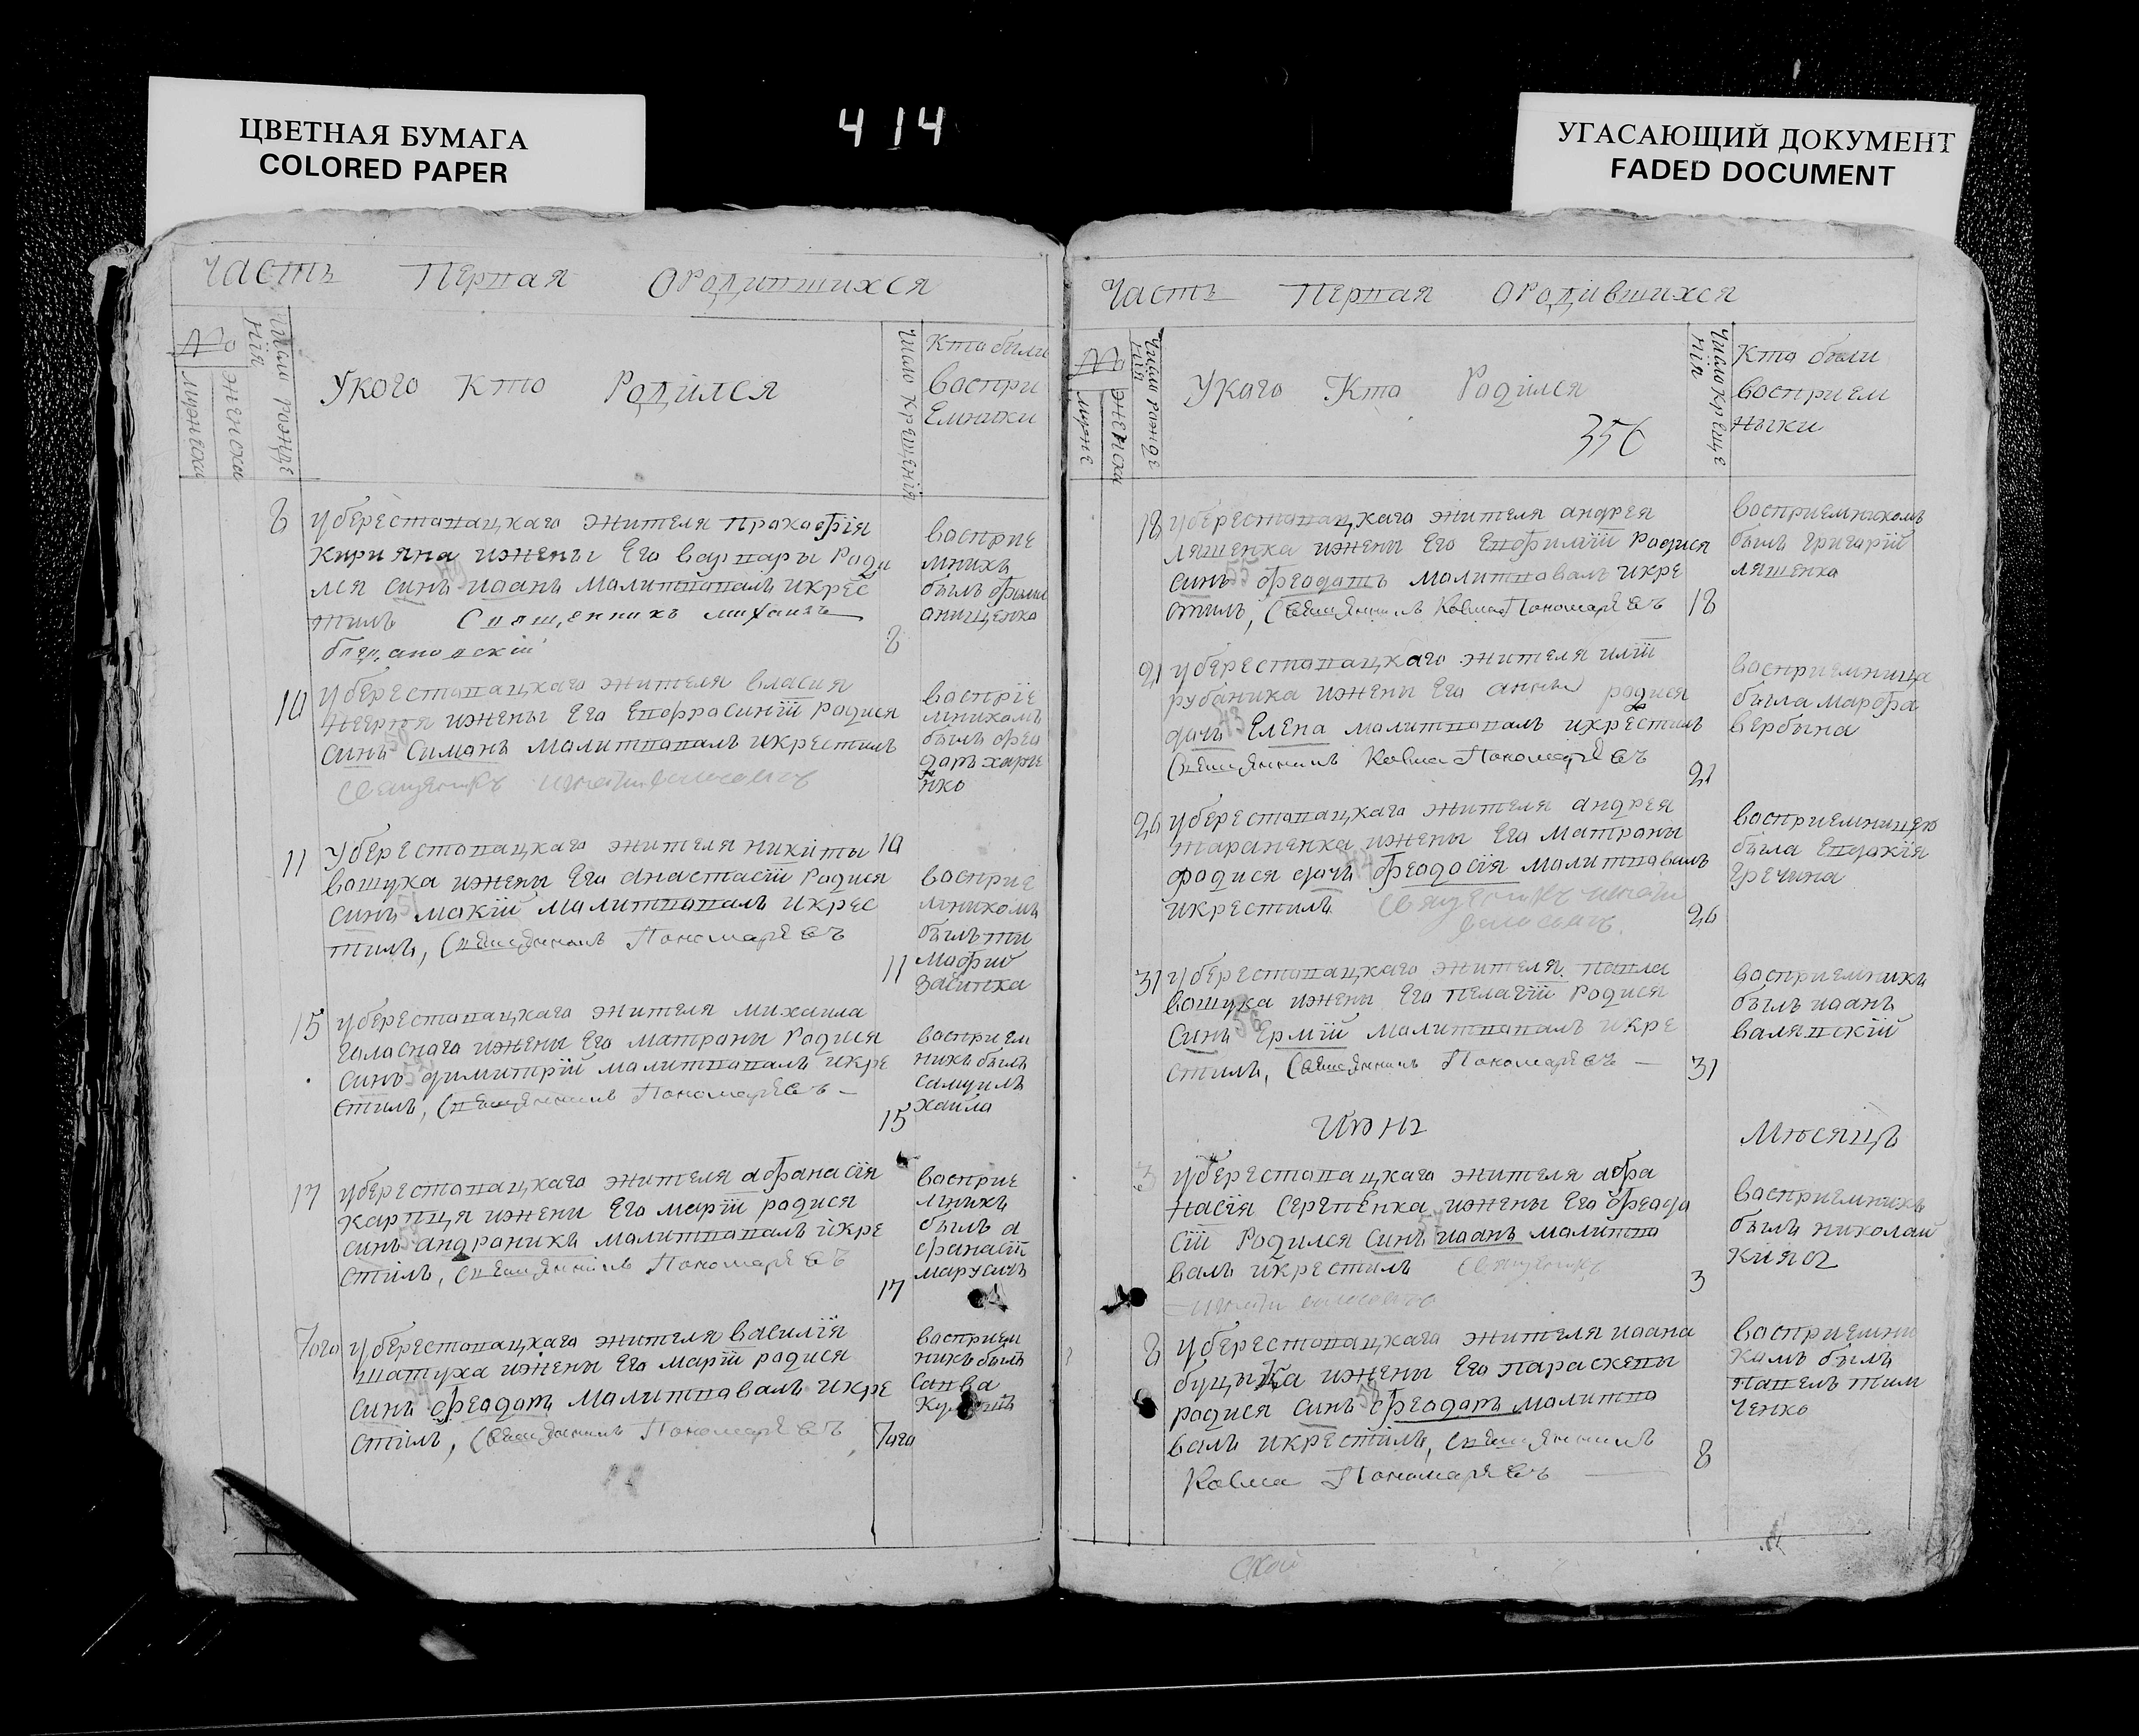 ЦВЕТНАЯ БУМАГА
COLORED PAPER
414
УГАСАЮЩИЙ ДОКУМЕНТ
FADED DOCUMENT
Часть Первая Ородившихся
№
мужески
женски
Число рожде
нія
Укого Кто Родился
Число крещенія
Кто были
воспри
емники
8
уберестовацкаго жителя пракофія
кирияна ижены Его варвары Роди
лся синъ иоанъ малитвовалъ икрес
тилъ Священникъ михаилъ
8
восприе
мникъ
былъ
анищенко
10
уберестовацкаго жителя власия
ижены Его Евфрасиніи Родися
синъ Симанъ малитвовалъ икрестилъ
Священникъ
10
восприе
мникомъ
былъ фео
даръ харче
нко
11
уберестовацкаго жителя никиты
вашука ижены Его анастасіи Родися
синъ макій малитвовалъ икрес
тилъ, Священникъ Пономаревъ
11
восприе
мникомъ
былъ ти
мофий
засипка
15
уберестовацкаго жителя михаила
галаснаго ижены Его матроны Родися
синъ димитрій малитвовалъ икре
стилъ, Священникъ Пономаревъ —
15
восприем
никъ былъ
самуилъ
хаило
17
уберестовацкаго жителя афанасія
карпця ижени Его маріи родися
синъ андраникъ малитвовалъ икре
стилъ, Священникъ Пономаревъ
17
восприе
мникъ
былъ а
фанасій
марусичъ
7 ого
уберестовацкаго жителя василія
шатуха ижены Его маріи родися
синъ феодотъ малитвовалъ икре
стилъ, Священникъ Пономаревъ
7 ого
восприем
никъ былъ
савва
Часть Первая ородившихся
№
муже
женски
Число рожде
нія
Укаго Кто Родился
356
Число креще
нія
Кто были
восприем
ники
18
уберестовацкаго жителя андрея
ляшенка ижены Его Евфиміи родися
55
синъ феодотъ малитвовалъ икре
стилъ, Священникъ Косма Пономаревъ
18
восприемникомъ
былъ григорій
ляшенко
21
уберестовацкаго жителя иліи
рубаника ижены Его анны родися
43
дочь Елена малитвовалъ икрестилъ
Священникъ Косма Пономаревъ
21
восприемница
была марфа
вербына
26
уберестовацкаго жителя андрея
тараненка ижены Его матроны
родися дочь феодосія малитвовалъ
икрестилъ Священникъ
26
восприемницею
была Евдокія
гречина
31
уберестовацкаго жителя павла
вашука ижены Его пелагіи родися
56
синъ Ермій малитвовалъ икре
стилъ, Священникъ Пономаревъ —
31
восприемникъ
былъ иоанъ
валявскій
Июнь Мѣсяцъ
3
уберестовацкаго жителя афа
насія серпенка ижены Его феодо
57
сіи Родился синъ иоанъ малитво
валъ икрестилъ Священникъ
3
восприемникъ
былъ николай
8
уберестовацкаго жителя иоана
ижены Его параскевы
58
родися синъ феодотъ малитво
валъ икрестилъ, Священникъ
Косма Пономаревъ —
8
восприемни
комъ былъ
павелъ тим
ченко
ской